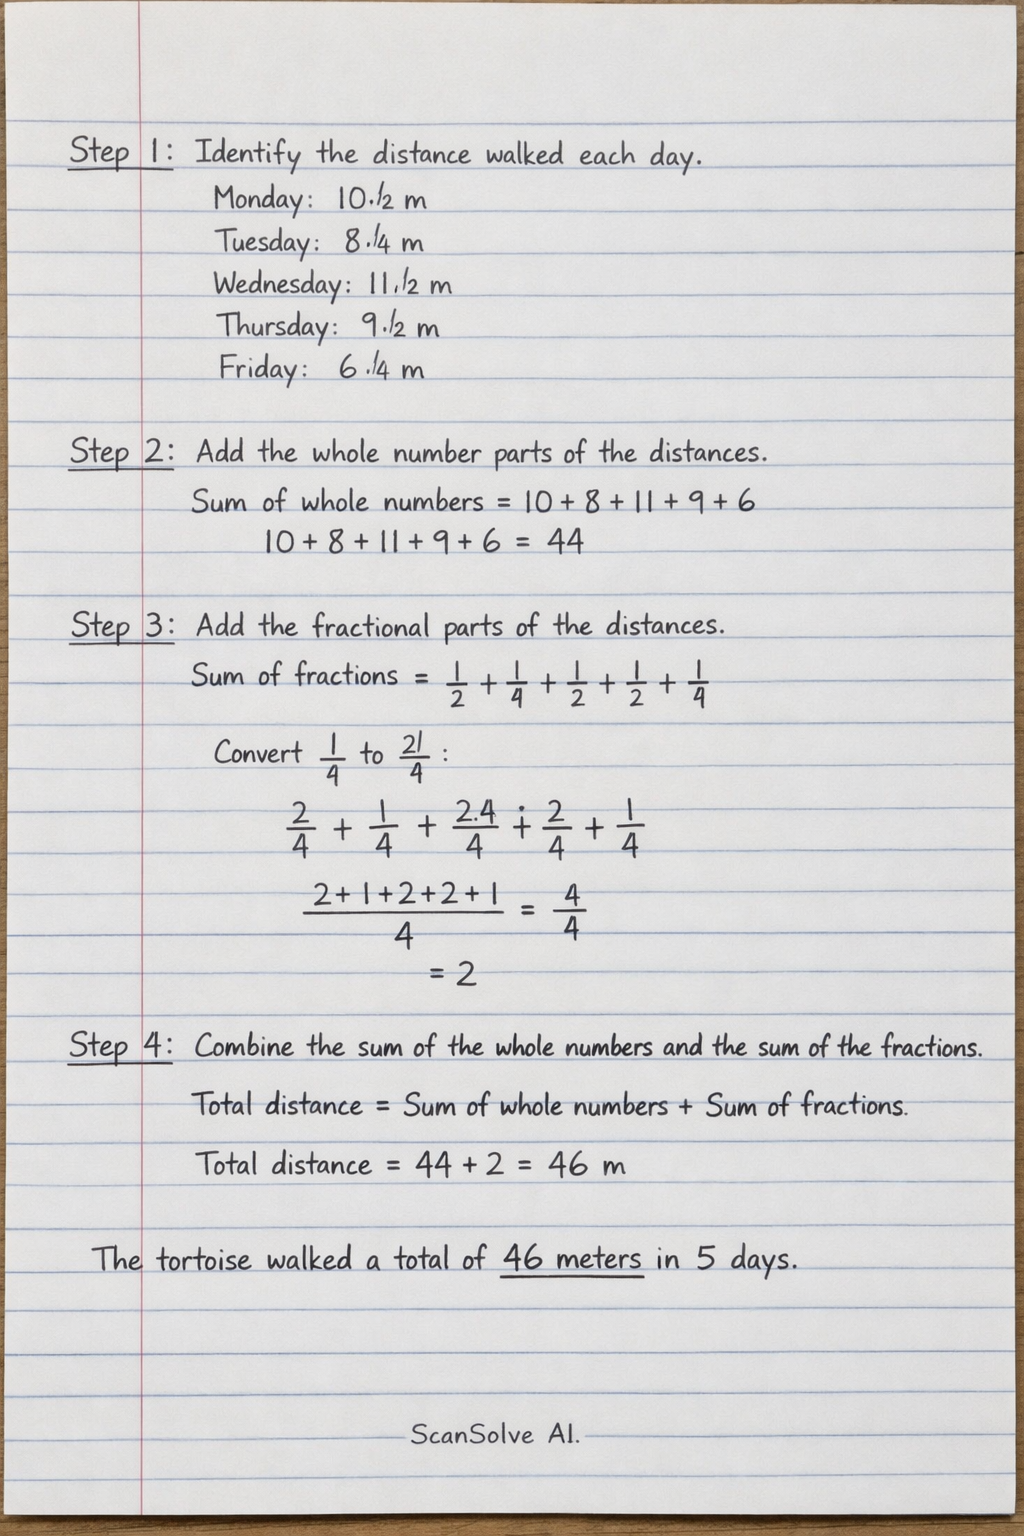 Step 1: Identify the distance walked each day.
Monday: 10.1/2 m
Tuesday: 8.1/4 m
Wednesday: 11.1/2 m
Thursday: 9.1/2 m
Friday: 6.1/4 m
Step 2: Add the whole number parts of the distances.
Sum of whole numbers = 10 + 8 + 11 + 9 + 6
10 + 8 + 11 + 9 + 6 = 44
Step 3: Add the fractional parts of the distances.
Sum of fractions = 1/2 + 1/4 + 1/2 + 1/2 + 1/4
Convert 1/4 to 21/4 :
2/4 + 1/4 + 2.4/4 + 2/4 + 1/4
2+1+2+2+1/4 = 4/4
= 2
Step 4: Combine the sum of the whole numbers and the sum of the fractions.
Total distance = Sum of whole numbers + Sum of fractions.
Total distance = 44 + 2 = 46 m
The tortoise walked a total of 46 meters in 5 days.
ScanSolve AI.